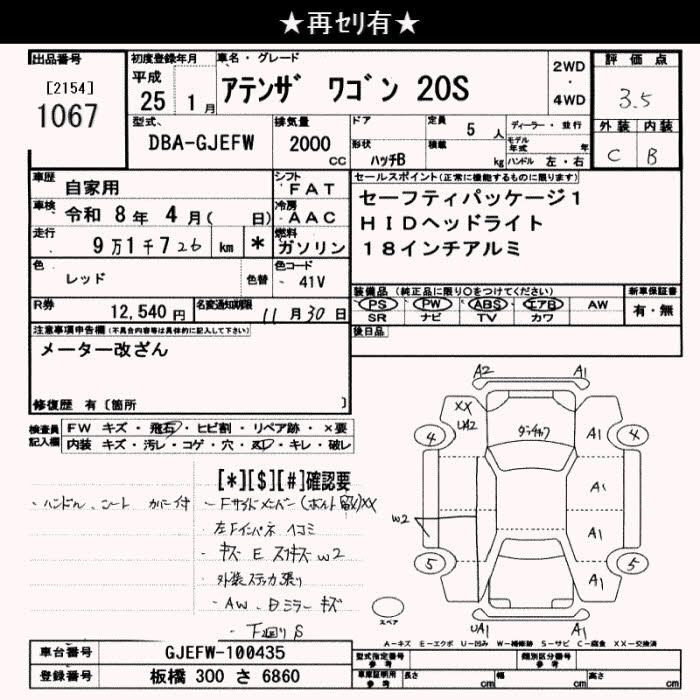 ★再ｾﾘ有★
出品番号
[2154]
1067
初度登録年月
平成
25 1月
車名・グレード
アテンザ ワゴン 20S
2WD
・
4WD
評価点
3.5
外装 内装
C B
型式
DBA-GJEFW
排気量
2000
CC
ドア
形状
ハッチB
定員
5 人
積載
kg
ディーラー・並行
モデル年式 年
ハンドル 左・右
車歴
自家用
シフト
FAT
車検
令和 8年 4月( 日)
冷房
AAC
走行
9万1千726 km *
燃料
ガソリン
色
レッド
色替
色コード
- 41V
R券
12,540 円
名変通知期限
11月30日
セールスポイント(正常に機能するものに限ります)
セーフティパッケージ1
HIDヘッドライト
18インチアルミ
装備品 (純正品に限り○をつけてください)
PS PW ABS エアB AW
SR ナビ TV カワ
新車保証書
有・無
後日品
注意事項申告欄(不具合内容等は具体的に記入して下さい)
メーター改ざん
修復歴 有〔箇所 〕
検査員
記入欄
FW キズ・飛石・ヒビ割・リペア跡・×要
内装 キズ・汚レ・コゲ・穴・ヌレ・キレ・破レ
[*][$][#]確認要
- ハンドル、シート カバー付
- Fサイドメンバー(ボルト留)XX
左Fインパネ ハコミ
- キズ E スリキズ W2
- 外装ステッカ張り
- AW、Bミラー キズ
- 下廻り S
A2 A1
XX
UA2
4 4
A1
A1
W2
A1
5 5
A1
UA1 A1
スペア
A-キズ E-エクボ U-凹み W-補修跡 S-サビ C-腐食 XX-交換済
車台番号
GJEFW-100435
登録番号
板橋 300 さ 6860
型式指定番号
参考
類別区分番号
参考
車庫証明用
参考
長さ cm
幅 cm
高さ cm